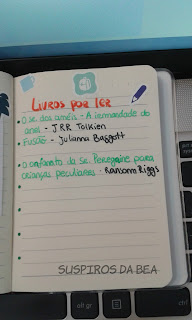 LIVROS POR LER
• O sr. dos anéis - A irmandade do
anel - JRR Tolkien
• Fusão - Julianna Baggott
• O orfanato da sr. Peregrine para
crianças peculiares - Ransom Riggs
SUSPIROS DA BEA
alt gr
ctrl